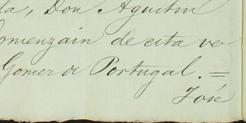 la, Don Agustin
omenzain de esta ve
Gomez de Portugal. =
José